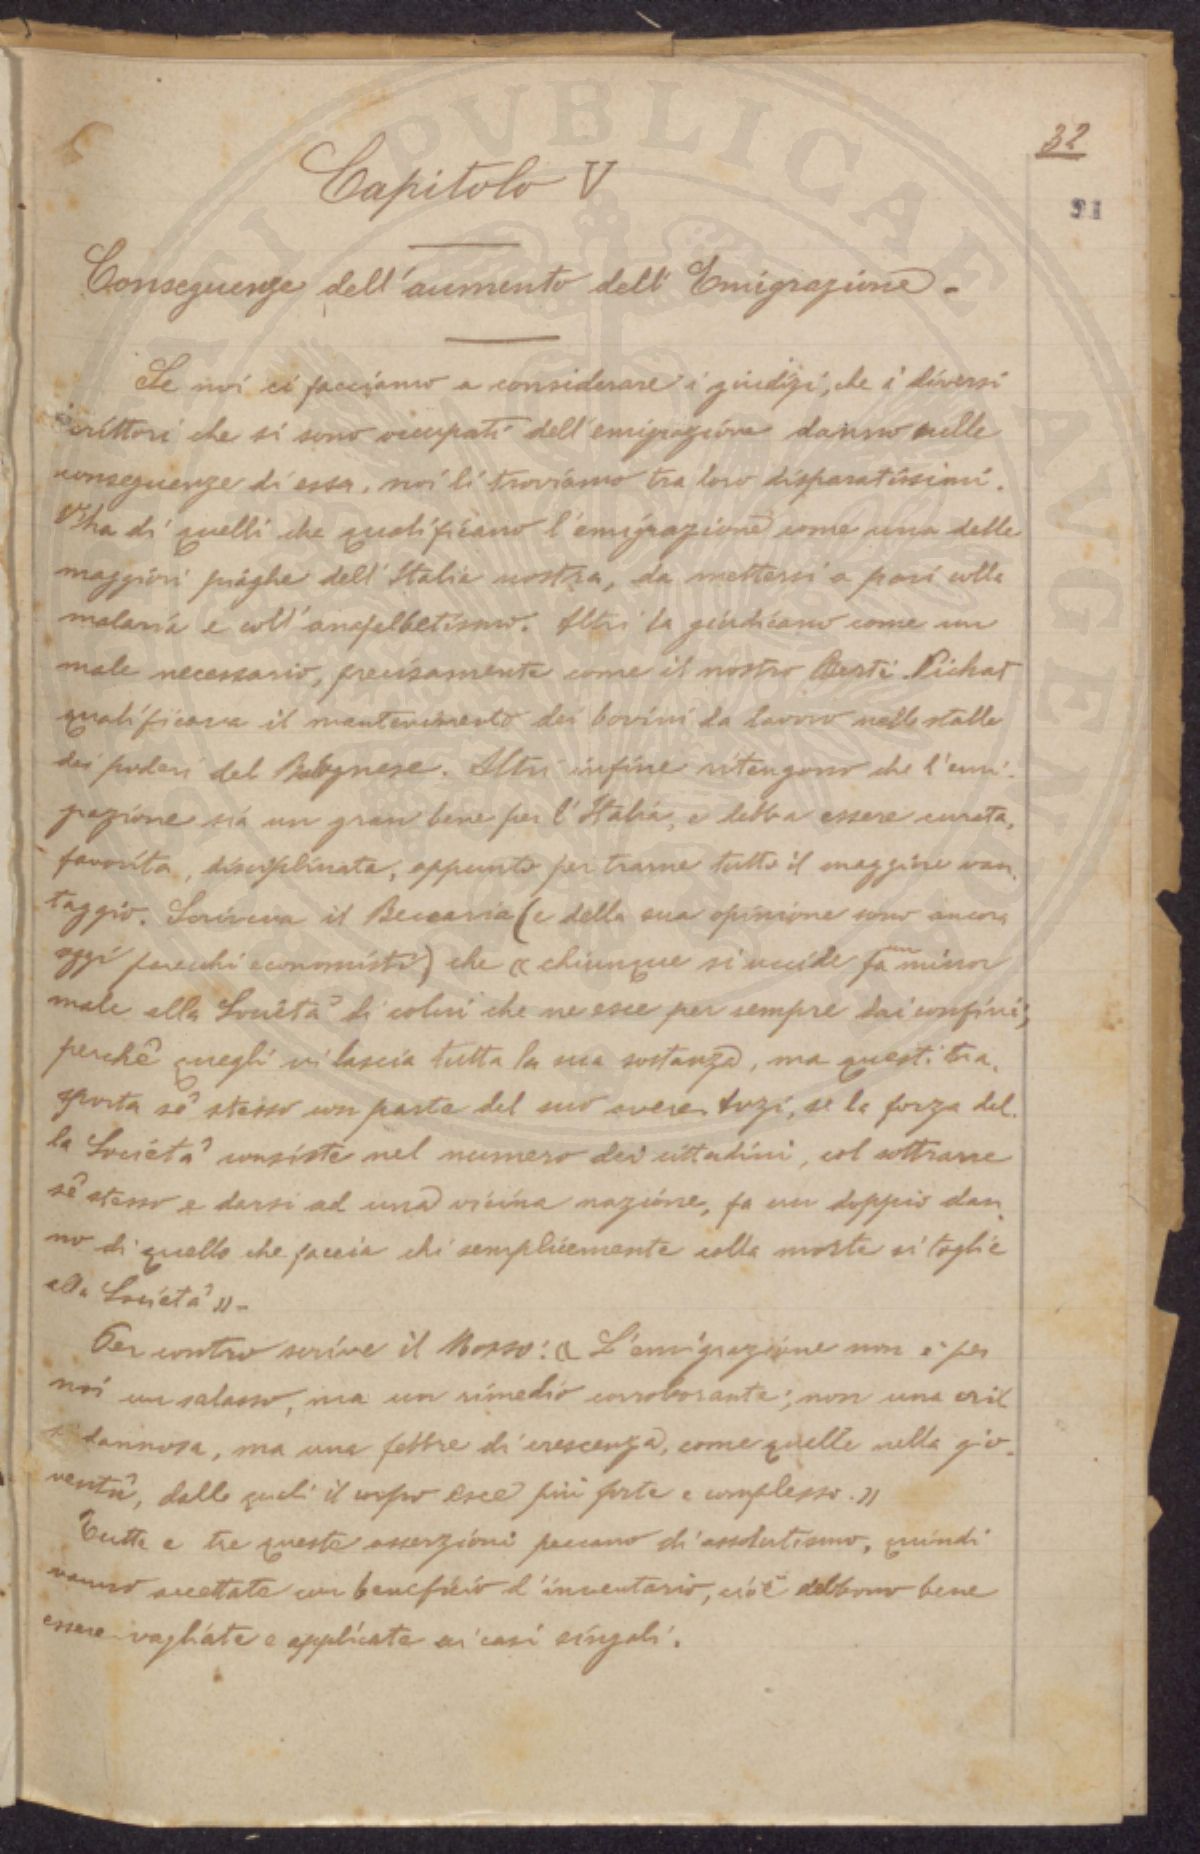 32
21
Capitolo V
Conseguenze dell'aumento dell'Emigrazione.-
Se noi ci facciamo a considerare i giudizi, che i diversi
scrittori che si sono occupati dell'emigrazione danno sulle
conseguenze di essa, noi li troviamo tra loro disparatissimi.
V'ha di quelli che qualificano l'emigrazione come una delle
maggiori piaghe dell'Italia nostra, da mettersi a pari colla
malaria e coll'anafalbetismo. Altri la giudicano come un
male necessario, precisamente come il nostro Berti-Pichat
qualificava il mantenimento dei bovini da lavoro nelle stalle
dei poderi del Bolognese. Altri infine ritengono che l'emi-
grazione sia un gran bene per l'Italia, e debba essere curata,
favorita, disciplinata, appunto per trarne tutto il maggiore van-
taggio. Scriveva il Beccaria (e della sua opinione sono ancora
oggi parecchi economisti) che « chiunque si uccide fa un minor
male alla Società di colui che ne esce per sempre dai confini;
perchè quegli vi lascia tutta la sua sostanza, ma questi tra-
sporta sè stesso con parte del suo avere. Anzi, se la forza del-
la Società consiste nel numero dei cittadini, col sottrarre
sè stesso e darsi ad una vicina nazione, fa un doppio dan-
no di quello che faccia chi semplicemente colla morte si toglie
alla Società».-
Per contro scrive il Mosso: « L'emigrazione non è per
noi un salasso, ma un rimedio corroborante; non una crisi
dannosa, ma una febbre di crescenza, come quelle nella gio-
ventù, dalle quali il corpo esce più forte e complesso.»
Tutte e tre queste asserzioni peccano di assolutismo, quindi
vanno accettate con beneficio d'inventario, cioè debbono bene
essere vagliate e applicate ai casi singoli.
PVBLICAE AVGENDO